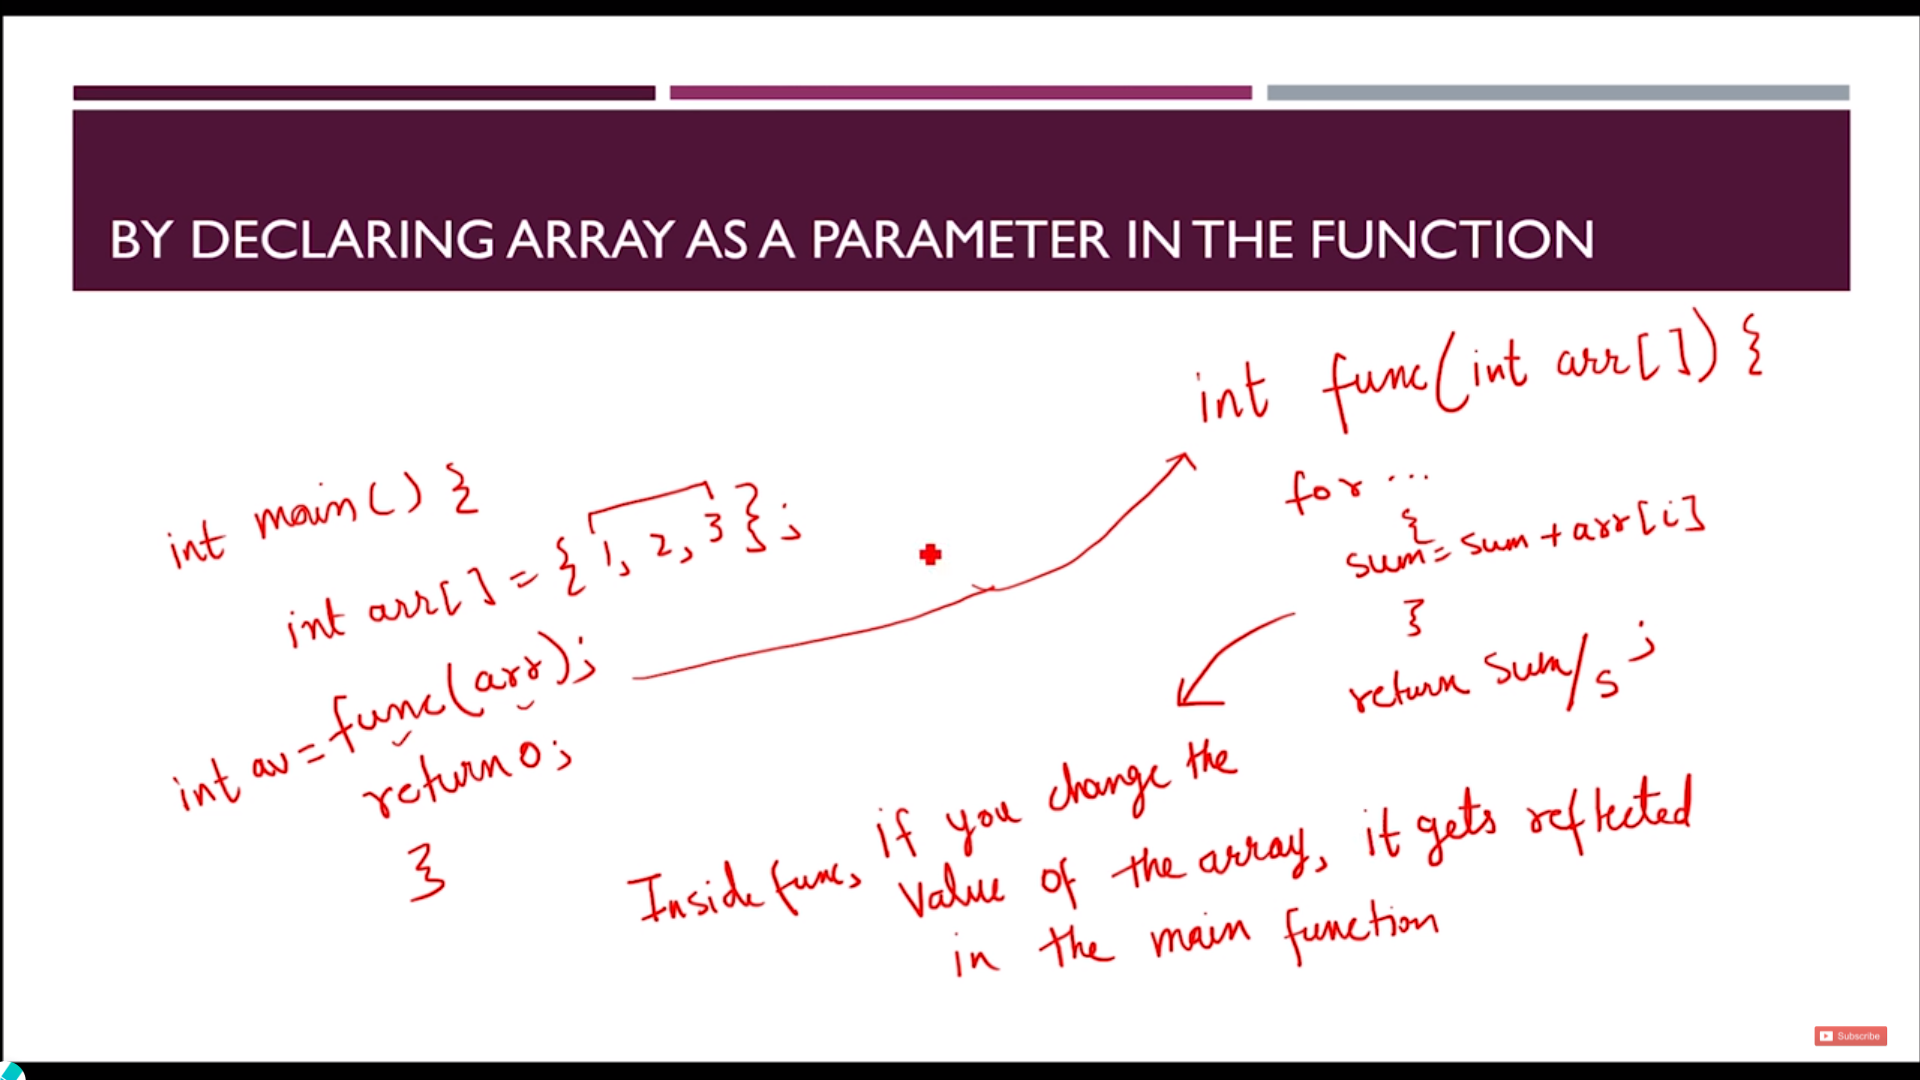 BY DECLARING ARRAY AS A PARAMETER IN THE FUNCTION
int main() {
int arr[] = {1, 2, 3};
int av = func(arr);
return 0;
}
int func(int arr[]) {
for ...
{
sum = sum + arr[i]
}
return sum/s;
Inside func, if you change the
value of the array, it gets reflected
in the main function
Subscribe